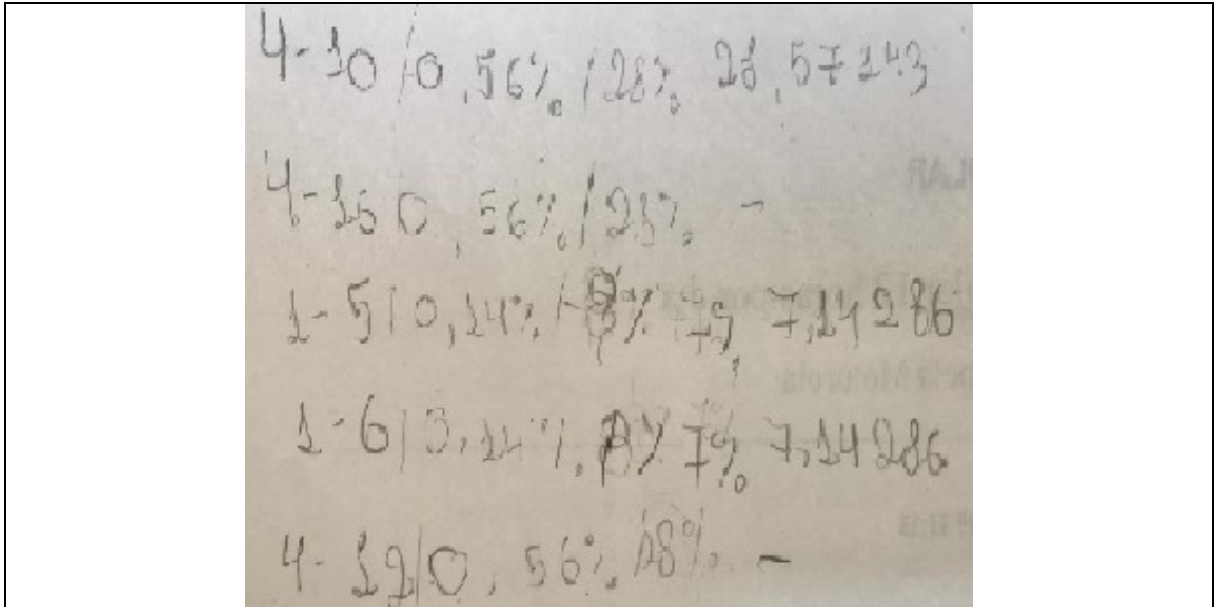 4-10/0,56%/28% 28,57143
4-16 0,56%/28% -
1-5/0,14%/ 7%, 7,14286
1-6/0,14%/ 7% 7,14286
4-12/0,56% 28% -